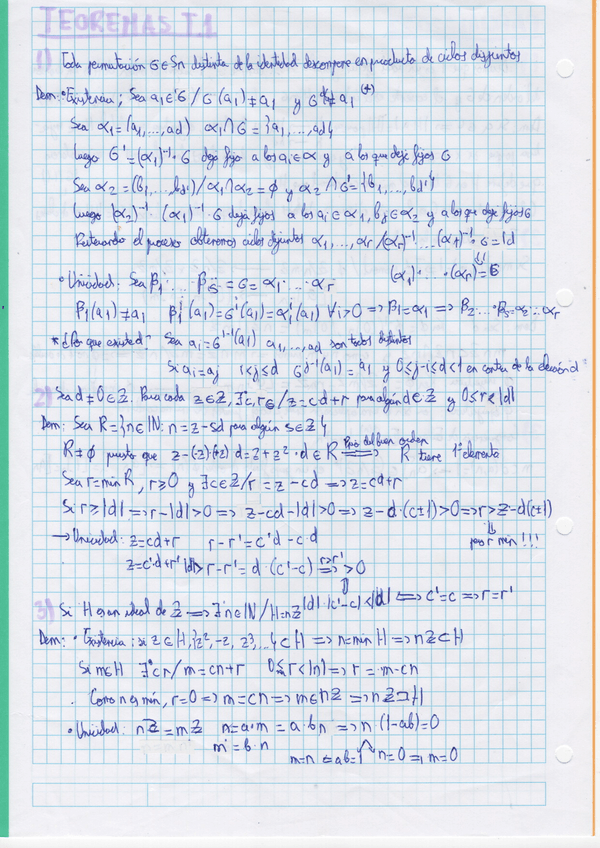 TEOREMAS T.1
1) Toda permutación σ∈Sn distinta de la identidad descompone en producto de ciclos disjuntos
Dem: • Existencia; Sea a₁∈σ / σ(a₁)≠a₁ y
Sea α₁=(a₁,...,ad) α₁∩σ={a₁,...,ad}
Luego σ'=(α₁)⁻¹·σ deja fijo a los aᵢ∈α y a los que deje fijos σ
Sea α₂=(b₁,...,bd')/α₁∩α₂=∅ y α₂∩σ'={b₁,...,bd'}
Luego (α₂)⁻¹·(α₁)⁻¹·σ deja fijos a los aᵢ∈α₁, bⱼ∈α₂ y a los que deje fijos σ
Reiterando el proceso obtenemos ciclos disjuntos α₁,...,αr/(αr)⁻¹...(α₁)⁻¹·σ=Id
(α₁)·...·(αr)=σ
• Unicidad: Sea β₁·...·βs=σ=α₁·...·αr
β₁(a₁)≠a₁ β₁ⁱ(a₁)=σⁱ(a₁)=α₁ⁱ(a₁) ∀i>0 ⇒ β₁=α₁ ⇒ β₂...·βs=α₂...αr
* ¿Por que existe d? Sea aᵢ=σⁱ⁻¹(a₁) a₁,...,ad son todos distintos
Si aᵢ=aⱼ 1<j≤d σʲ⁻ⁱ(a₁)=a₁ y 0≤j-i≤d<1 en contra de la elección d
2) Sea d≠0∈Z. Para cada z∈Z, ∃'c,r∈/z=cd+r para algún d∈Z y 0≤r<|d|
Dem: Sea R={n∈N: n=z-sd para algún s∈Z}
R≠∅ puesto que z-(z)(z)d=z+z²·d∈R ⇒ R tiene 1º elemento
Ppio del buen orden
Sea r=min R, r≥0 y ∃c∈Z/r=z-cd ⇒ z=cd+r
Si r≥|d| ⇒ r-|d|>0 ⇒ z-cd-|d|>0 ⇒ z-d·(c±1)>0 ⇒ r>z-d(c±1)
pero r min!!!
→ Unicidad: z=cd+r r-r'=c'd-c·d
z=c'd+r' |d|>r-r'=d·(c'-c) ⇒ >0
r>r'
|d|·|c'-c|<|d| ⇔ c'=c ⇒ r=r'
3) Si H es un ideal de Z ⇒ ∃'n∈N/H=nZ
Dem: • Existencia: si z∈H, {z², -z, z³,...}⊂H ⇒ n=min H ⇒ nZ⊂H
Si m∈H ∃'c r/m=cn+r 0≤r<|n| ⇒ r=m-cn
Como n es min, r=0 ⇒ m=cn ⇒ m∈nZ ⇒ nZ⊃H
• Unicidad: nZ=mZ n=a·m=a·bn ⇒ n(1-ab)=0
m=b·n
m=n ⇐ ab=1 n=0 ⇒ m=0